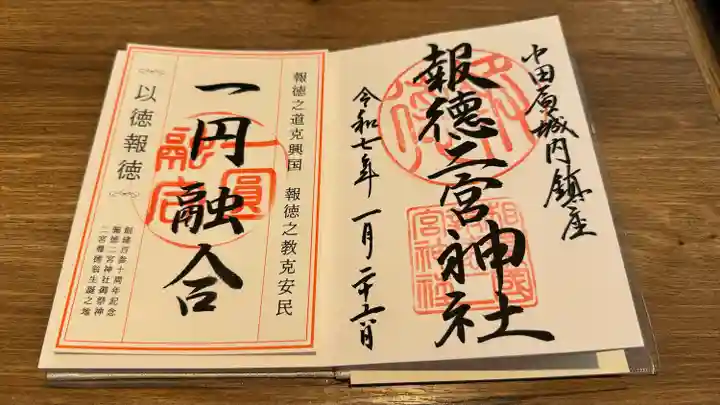 小田原城内鎮座
報徳二宮神社
令和七年一月二十六日
報徳之道克興国 報徳之教克安民
一円融合
一圓融合
以徳報徳
創建百参十周年記念
報徳二宮神社御祭神
二宮尊徳翁生誕之地